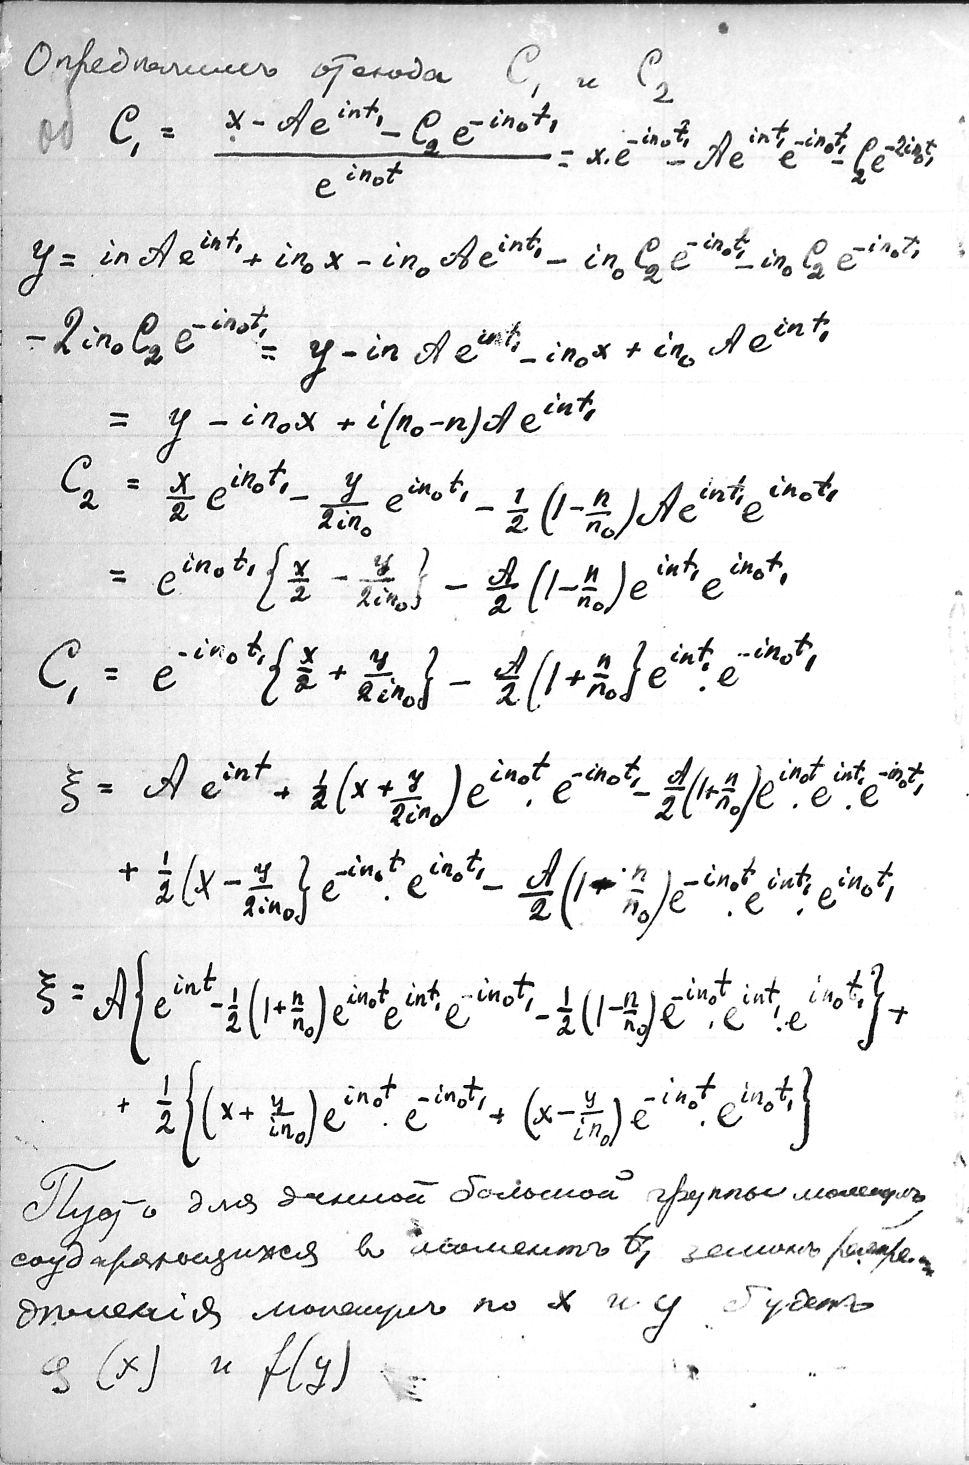 Опредѣлимъ отсюда C₁ и C₂
C₁ = (x - Ae^{int₁} - C₂e^{-in₀t₁}) / e^{in₀t} = x·e^{-in₀t₁} - Ae^{int₁}e^{-in₀t₁} - C₂e^{-2in₀t₁}
y = inAe^{int₁} + in₀x - in₀Ae^{int₁} - in₀C₂e^{-in₀t₁} - in₀C₂e^{-in₀t₁}
-2in₀C₂e^{-in₀t₁} = y - inAe^{int₁} - in₀x + in₀Ae^{int₁}
= y - in₀x + i(n₀-n)Ae^{int₁}
C₂ = x/2 e^{in₀t₁} - y/2in₀ e^{in₀t₁} - 1/2 (1 - n/n₀)Ae^{int₁}e^{in₀t₁}
= e^{in₀t₁}{x/2 - y/2in₀} - A/2 (1 - n/n₀)e^{int₁}e^{in₀t₁}
C₁ = e^{-in₀t₁}{x/2 + y/2in₀} - A/2 (1 + n/n₀}e^{int₁}·e^{-in₀t₁}
ξ = Ae^{int} + 1/2 (x + y/2in₀)e^{in₀t}·e^{-in₀t₁} - A/2 (1 + n/n₀)e^{in₀t}·e^{int₁}·e^{-in₀t₁}
+ 1/2 (x - y/2in₀}e^{-in₀t}·e^{in₀t₁} - A/2 (1 - n/n₀)e^{-in₀t}·e^{int₁}·e^{in₀t₁}
ξ = A{e^{int} - 1/2 (1 + n/n₀)e^{in₀t}e^{int₁}e^{-in₀t₁} - 1/2 (1 - n/n₀)e^{-in₀t}·e^{int₁}·e^{in₀t₁}} +
+ 1/2 {(x + y/in₀)e^{in₀t}·e^{-in₀t₁} + (x - y/in₀)e^{-in₀t}·e^{in₀t₁}}
Пусть для данной большой группы молекулъ,
соударяющихся въ моментъ t₁ законъ распре-
дѣленія молекулъ по x и y будетъ
φ(x) и f(y)